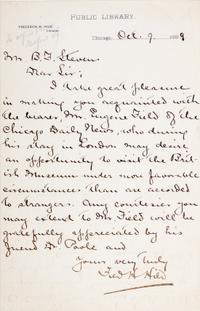 PUBLIC LIBRARY.
Chicago, Oct. 9, 1889
Mr B. F. Stevens
Dear Sir;
I take great pleasure
in making you acquainted with
the bearer, Mr. Eugene Field of the
Chicago Daily News, who during
his stay in London may desire
an opportunity to visit the Brit-
ish Museum under more favorable
circumstances than are accorded
to strangers. Any courtesies you
may extend to Mr. Field will be
gratefully appreciated by his
friend Dr. Poole and
Yours very truly
Fred. H. Hild